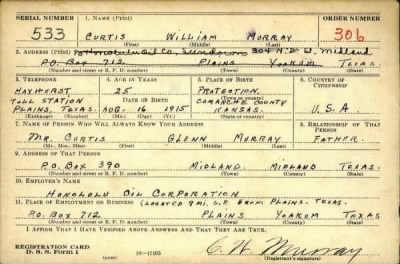 SERIAL NUMBER 1. NAME (Print) ORDER NUMBER
533 CURTIS WILLIAM MURRAY 306
(First) (Middle) (Last)
2. ADDRESS (Print) Honolulu Oil Co. Sundown 304 N.D St, Midland
P.O. Box 712 PLAINS YOAKUM TEXAS
(Number and street or R. F. D. number) (Town) (County) (State)
3. TELEPHONE 4. AGE IN YEARS 5. PLACE OF BIRTH 6. COUNTRY OF CITIZENSHIP
HAYHURST 25 PROTECTION,
TOLL STATION DATE OF BIRTH (Town or county) U.S.A
PLAINS, TEXAS. AUG. 16 1915 COMANCHE COUNTY
KANSAS.
(Mo.) (Day) (Yr.) (State or country)
7. NAME OF PERSON WHO WILL ALWAYS KNOW YOUR ADDRESS 8. RELATIONSHIP OF THAT PERSON
MR. CURTIS GLENN MURRAY FATHER.
(Mr., Mrs., Miss) (First) (Middle) (Last)
9. ADDRESS OF THAT PERSON
P.O. BOX 390 MIDLAND, MIDLAND TEXAS.
(Number and street or R. F. D. number) (Town) (County) (State)
10. EMPLOYER'S NAME
HONOLULU OIL CORPORATION
11. PLACE OF EMPLOYMENT OR BUSINESS (LOCATED 9 MI. S.E. FROM PLAINS. TEXAS.
P.O. BOX 712 PLAINS YOAKUM TEXAS
(Number and street or R. F. D. number) (Town) (County) (State)
I AFFIRM THAT I HAVE VERIFIED ABOVE ANSWERS AND THAT THEY ARE TRUE.
REGISTRATION CARD
D. S. S. Form 1 16—17105 C. W. Murray